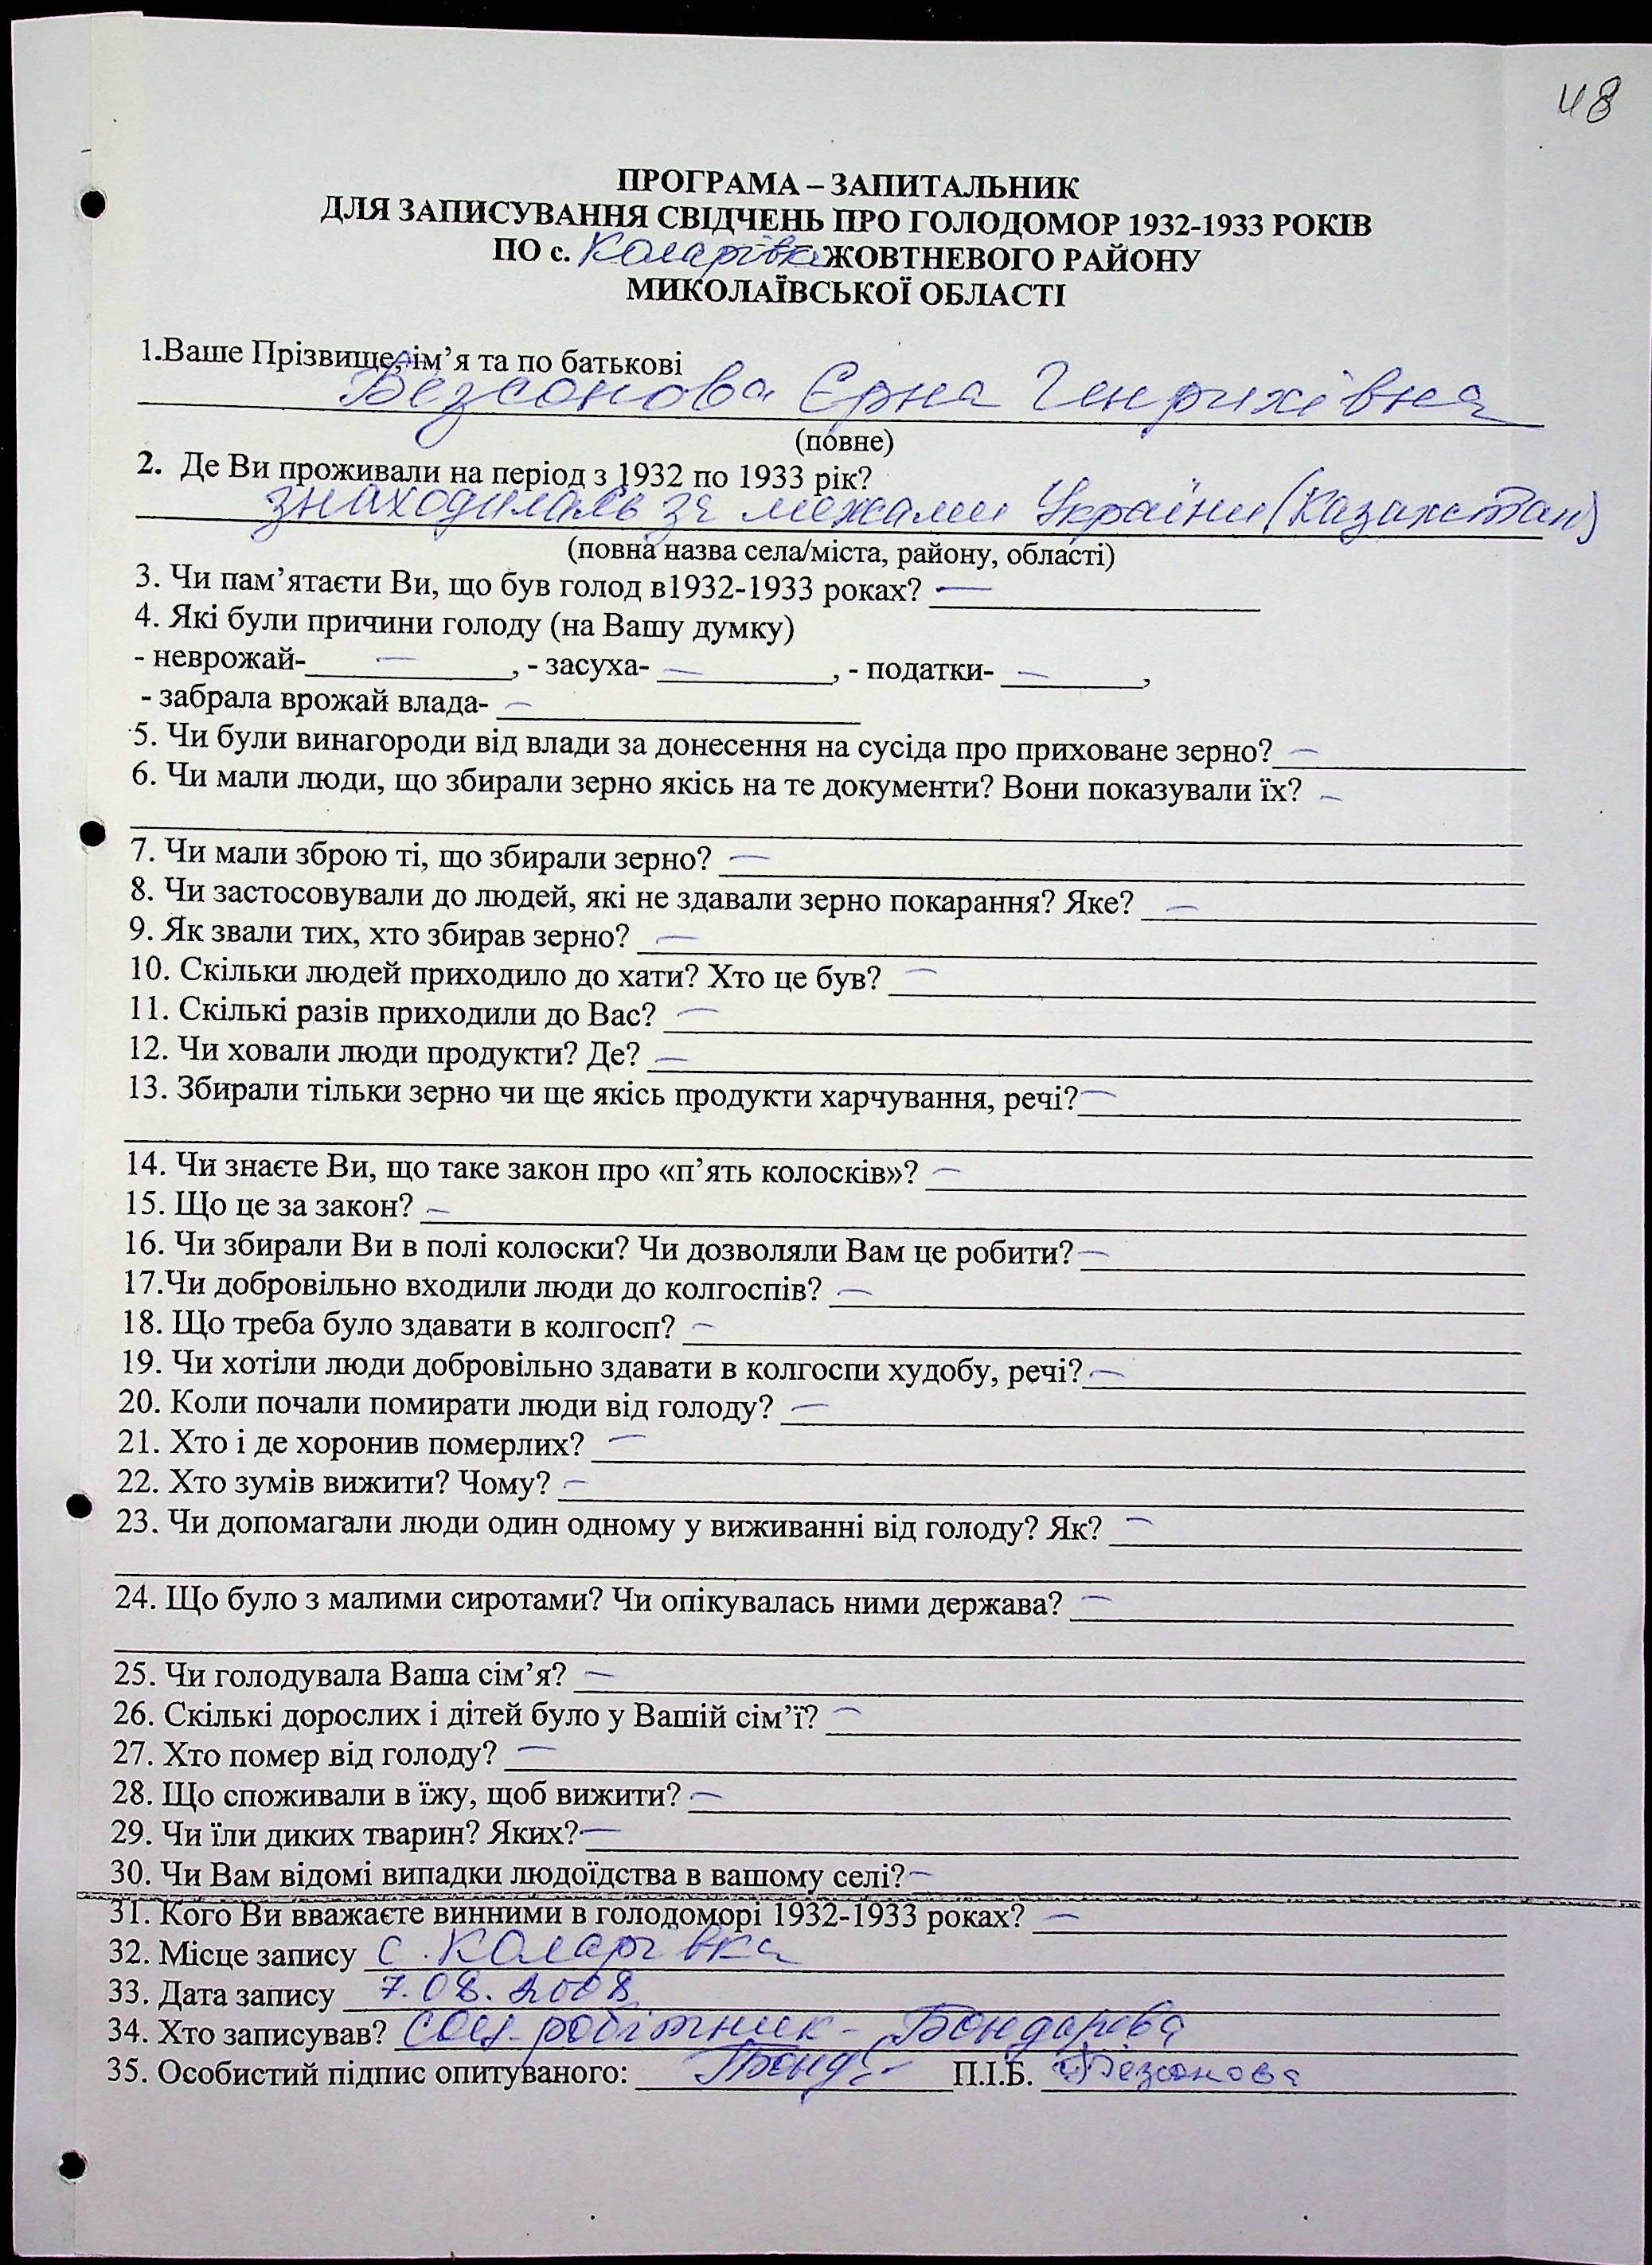 48
ПРОГРАМА – ЗАПИТАЛЬНИК
ДЛЯ ЗАПИСУВАННЯ СВІДЧЕНЬ ПРО ГОЛОДОМОР 1932-1933 РОКІВ
ПО с. Коларівка ЖОВТНЕВОГО РАЙОНУ
МИКОЛАЇВСЬКОЇ ОБЛАСТІ
1.Ваше Прізвище, ім’я та по батькові
Безсонова Єрна Генрихівна
(повне)
2. Де Ви проживали на період з 1932 по 1933 рік?
знаходилась за межами України (Казахстан)
(повна назва села/міста, району, області)
3. Чи пам’ятаєти Ви, що був голод в1932-1933 роках? —
4. Які були причини голоду (на Вашу думку)
- неврожай- — , - засуха- — , - податки- — ,
- забрала врожай влада- —
5. Чи були винагороди від влади за донесення на сусіда про приховане зерно? —
6. Чи мали люди, що збирали зерно якісь на те документи? Вони показували їх? —
7. Чи мали зброю ті, що збирали зерно? —
8. Чи застосовували до людей, які не здавали зерно покарання? Яке? —
9. Як звали тих, хто збирав зерно? —
10. Скільки людей приходило до хати? Хто це був? —
11. Скількі разів приходили до Вас? —
12. Чи ховали люди продукти? Де? —
13. Збирали тільки зерно чи ще якісь продукти харчування, речі? —
14. Чи знаєте Ви, що таке закон про «п’ять колосків»? —
15. Що це за закон? —
16. Чи збирали Ви в полі колоски? Чи дозволяли Вам це робити? —
17.Чи добровільно входили люди до колгоспів? —
18. Що треба було здавати в колгосп? —
19. Чи хотіли люди добровільно здавати в колгоспи худобу, речі? —
20. Коли почали помирати люди від голоду? —
21. Хто і де хоронив померлих? —
22. Хто зумів вижити? Чому? —
23. Чи допомагали люди один одному у виживанні від голоду? Як? —
24. Що було з малими сиротами? Чи опікувалась ними держава? —
25. Чи голодувала Ваша сім’я? —
26. Скількі дорослих і дітей було у Вашій сім’ї? —
27. Хто помер від голоду? —
28. Що споживали в їжу, щоб вижити? —
29. Чи їли диких тварин? Яких? —
30. Чи Вам відомі випадки людоїдства в вашому селі? —
31. Кого Ви вважаєте винними в голодоморі 1932-1933 роках? —
32. Місце запису с. Коларівка
33. Дата запису 7.08.2008
34. Хто записував? соц-робітник - Бондарєва
35. Особистий підпис опитуваного: Бонд П.І.Б. Безсонова